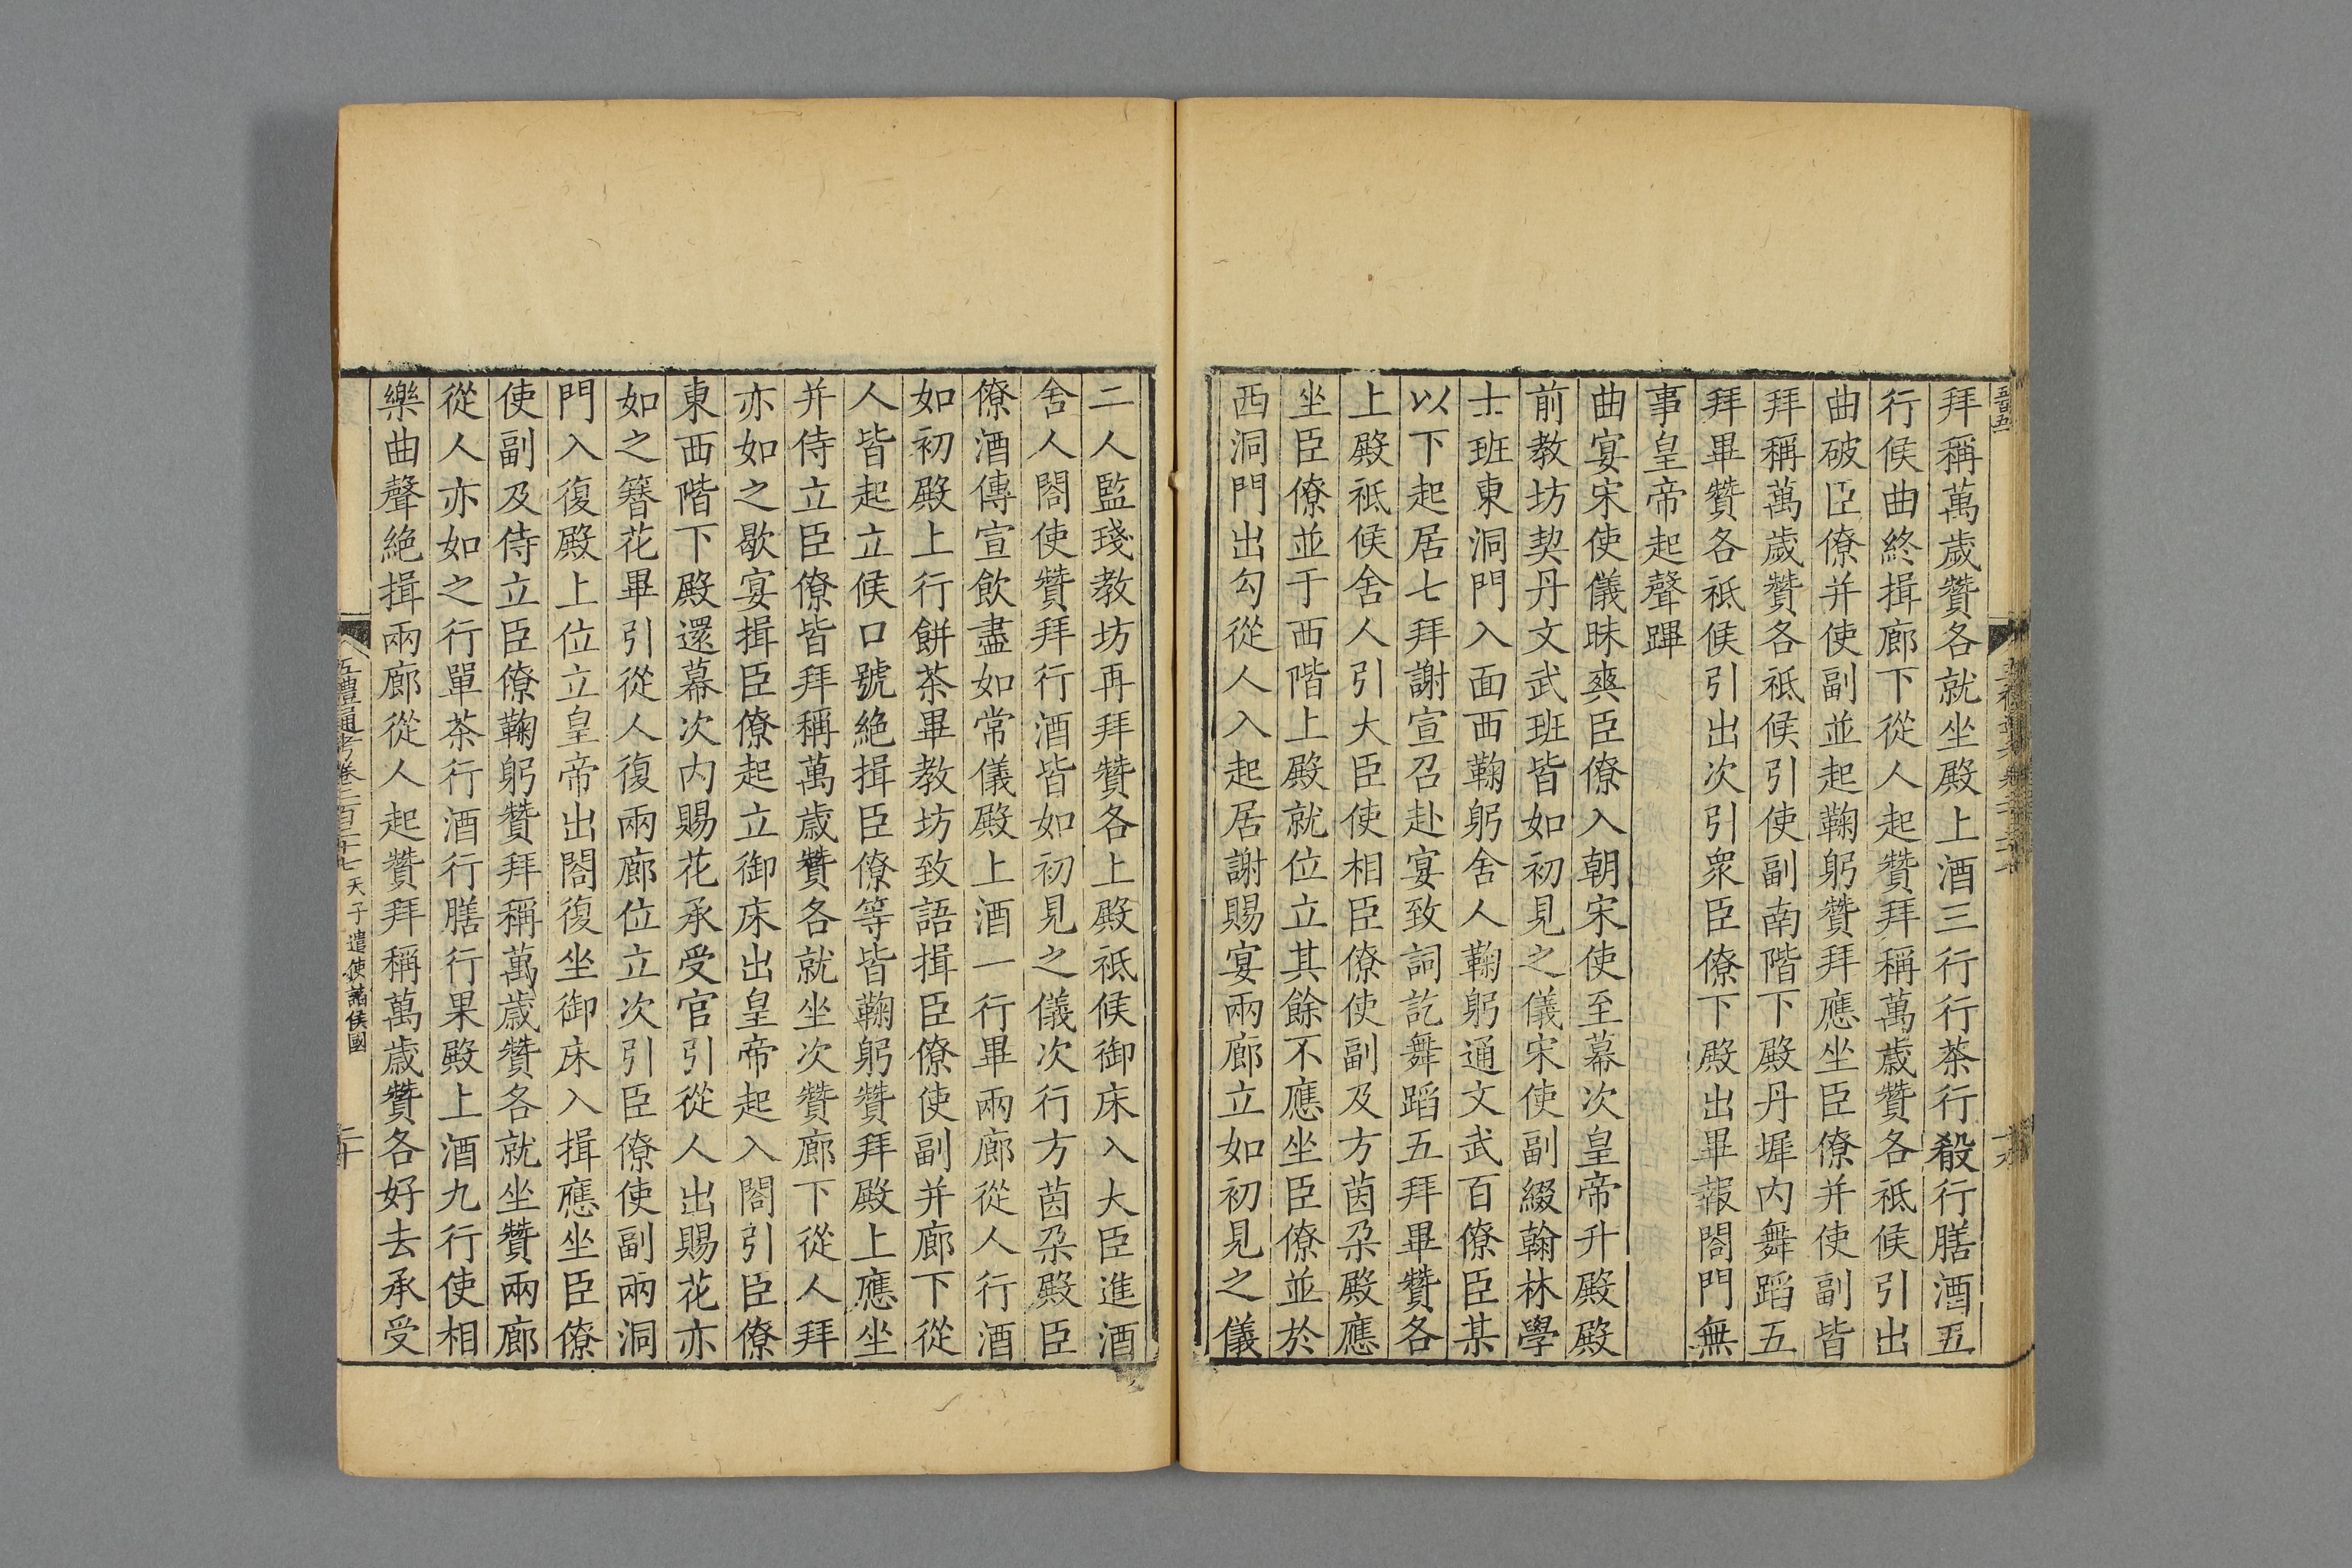 拜稱萬歲贊各就坐殿上酒三行行茶行殽行膳酒五
行候曲終揖廊下從人起贊拜稱萬歲贊各祗候引出
曲破臣僚并使副並起鞠躬贊拜應坐臣僚并使副皆
拜稱萬歲贊各祗候引使副南階下殿丹墀內舞蹈五
拜畢贊各祗候引出次引眾臣僚下殿出畢報閤門無
事皇帝起聲蹕
曲宴宋使儀昧爽臣僚入朝宋使至幕次皇帝升殿殿
前教坊契丹文武班皆如初見之儀宋使副綴翰林學
士班東洞門入面西鞠躬舍人鞠躬通文武百僚臣某
以下起居七拜謝宣召赴宴致詞訖舞蹈五拜畢贊各
上殿祗候舍人引大臣使相臣僚使副及方茵朶殿應
坐臣僚並于西階上殿就位立其餘不應坐臣僚並於
西洞門出勾從人入起居謝賜宴兩廊立如初見之儀
二人監琖教坊再拜贊各上殿祗候御床入大臣進酒
舍人閤使贊拜行酒皆如初見之儀次行方茵朶殿臣
僚酒傳宣飲盡如常儀殿上酒一行畢兩廊從人行酒
如初殿上行餅茶畢教坊致語揖臣僚使副并廊下從
人皆起立候口號絶揖臣僚等皆鞠躬贊拜殿上應坐
并侍立臣僚皆拜稱萬歲贊各就坐次贊廊下從人拜
亦如之歇宴揖臣僚起立御床出皇帝起入閤引臣僚
東西階下殿還幕次內賜花承受官引從人出賜花亦
如之簪花畢引從人復兩廊位立次引臣僚使副兩洞
門入復殿上位立皇帝出閤復坐御床入揖應坐臣僚
使副及侍立臣僚鞠躬贊拜稱萬歲贊各就坐贊兩廊
從人亦如之行單茶行酒行膳行果殿上酒九行使相
樂曲聲絶揖兩廊從人起贊拜稱萬歲贊各好去承受
五禮通考卷二百二十七 天子遣使諸侯國 二十